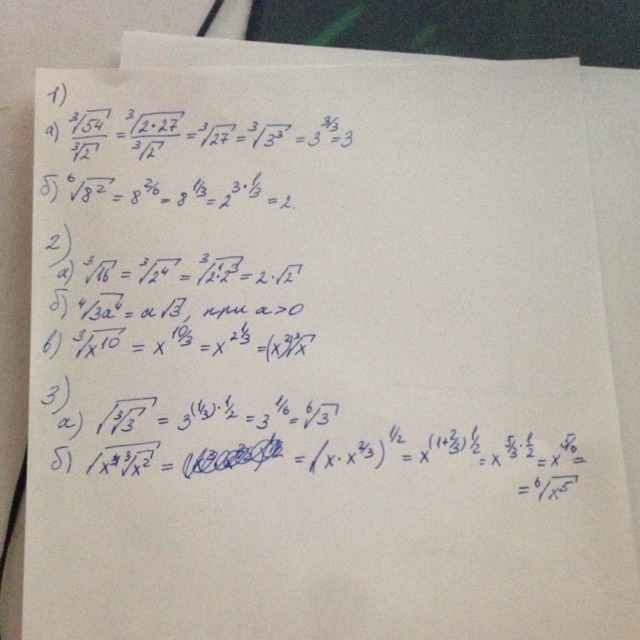 1)
а) ∛54/∛2 = ∛(2·27)/∛2 = ∛27 = ∛3³ = 3^(3/3) = 3
б) ⁶√8² = 8^(2/6) = 8^(1/3) = 2^(3·1/3) = 2.
2)
а) ∛16 = ∛2⁴ = ∛(2¹·2³) = 2·√2
б) ⁴√3a⁴ = a√3, при a>0
в) ∛x¹⁰ = x^(10/3) = x^(2 1/3) = (x)²∛x
3)
а) √∛3 = 3^((1/3)·1/2) = 3^(1/6) = ⁶√3
б) √(x ∛x²) = = (x·x^(2/3))^(1/2) = x^((1+2/3)1/2) = x^(5/3·1/2) = x^(5/6) =
= ⁶√x⁵